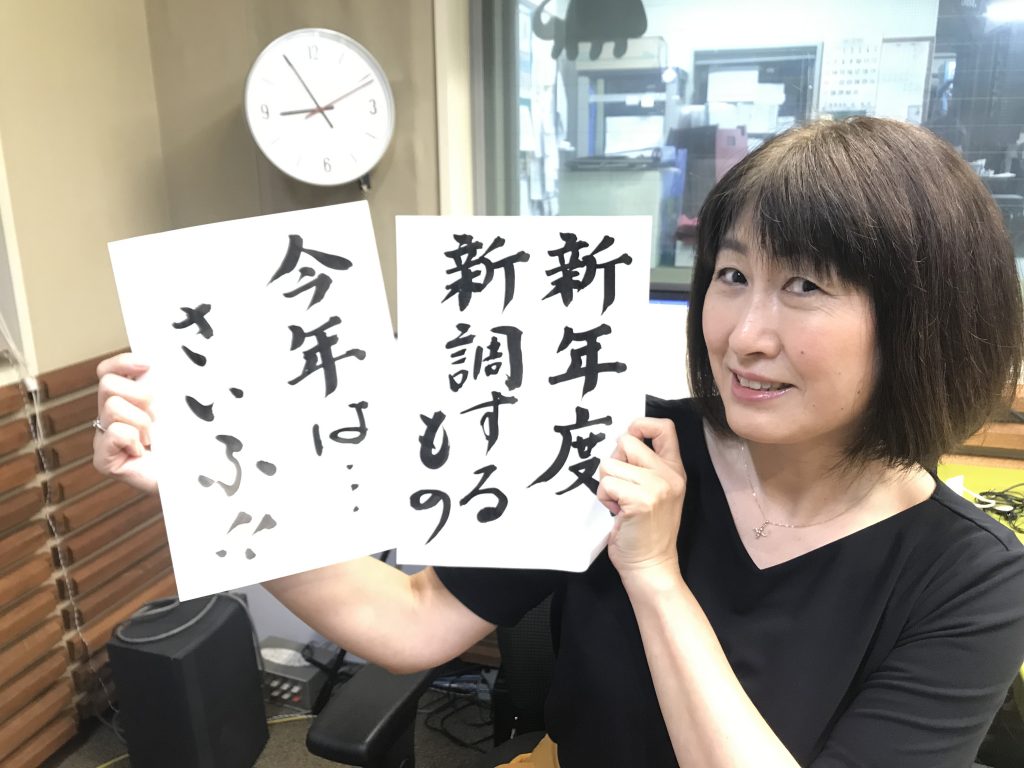 新年度
新調する
もの
今年は…
さいふ!!
12
3
6
9